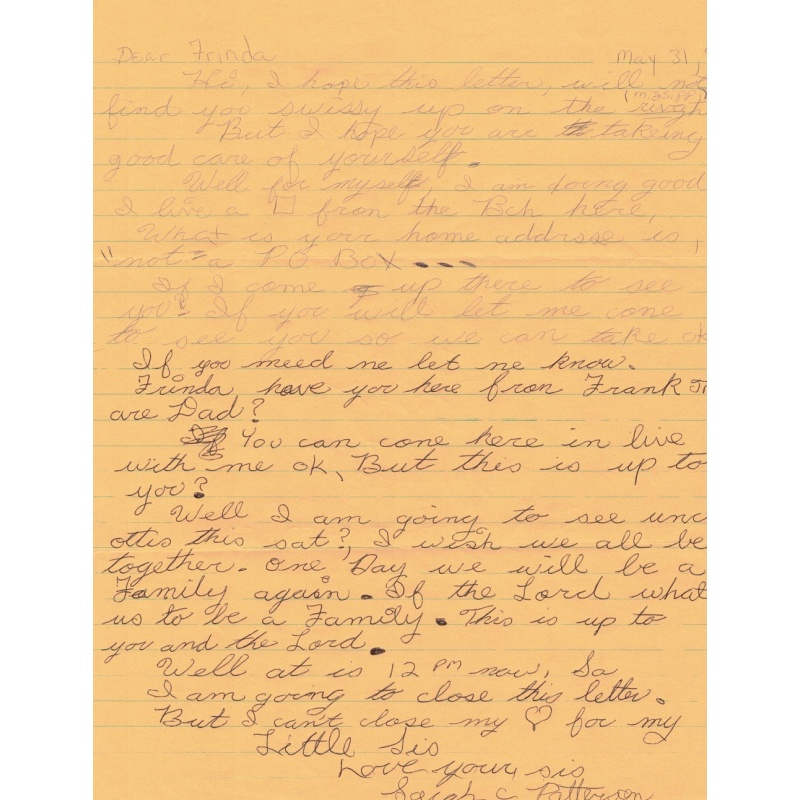 Dear Frinda May 31,
Hi, I hope this letter, will not
find you swissy up on the
But I hope you are takeing
good care of yourself.
Well for myself, I am doing good
I live a □ fron the Bch here,
What is your home addrsse is,
"not" a PO BOX...
If I come up there to see
you? If you will let me cone
to see you so we can take ok
If you meed ne let ne know.
Frinda have you here fron Frank Jr
are Dad?
You can cone here in live
with me ok, But this is up to
you?
Well I am going to see unc
ottis this sat?, I wish we all be
together. One Day we will be a
Family again. If the Lord what
us to be a Family. This is up to
you and the Lord.
Well at is 12 PM now, So
I am going to close this letter.
But I can't close my ♡ for my
Little Sis
Love your, sis
Sarah C Patterson